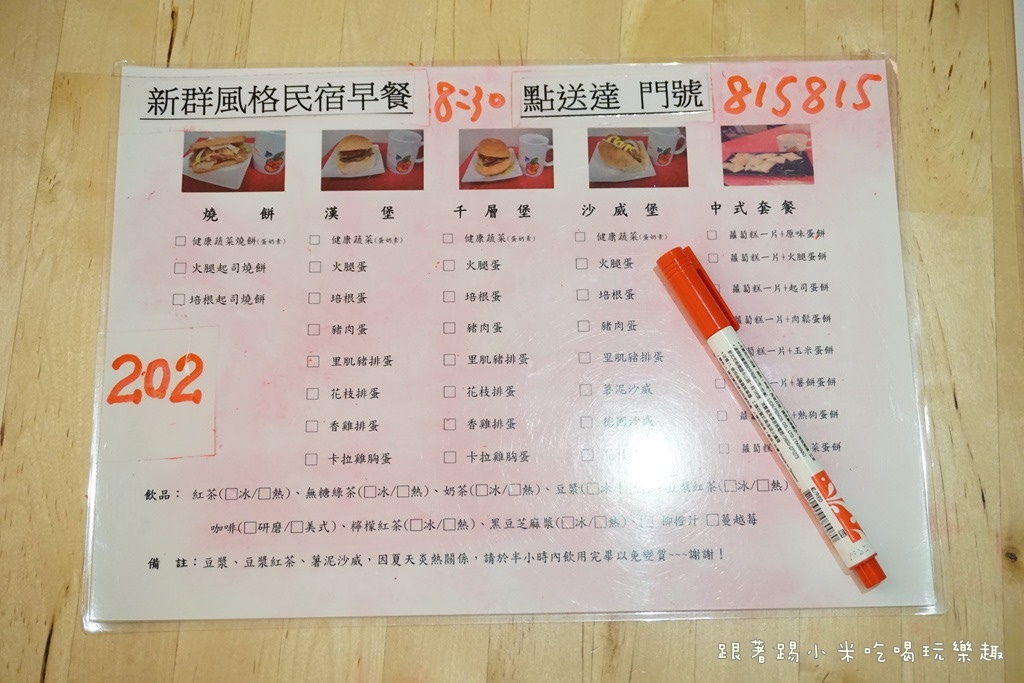 新群風格民宿早餐 8:30 點送達 門號 815815
燒餅 漢堡 千層堡 沙威堡 中式套餐
□ 健康蔬菜燒餅(蛋奶素) □ 健康蔬菜(蛋奶素) □ 健康蔬菜(蛋奶素) □ 健康蔬菜(蛋奶素) □ 蘿蔔糕一片+原味蛋餅
□ 火腿起司燒餅 □ 火腿蛋 □ 火腿蛋 □ 火腿蛋 □ 蘿蔔糕一片+火腿蛋餅
□ 培根起司燒餅 □ 培根蛋 □ 培根蛋 □ 培根蛋 蘿蔔糕一片+起司蛋餅
□ 豬肉蛋 □ 豬肉蛋 □ 豬肉蛋 蘿蔔糕一片+肉鬆蛋餅
□ 里肌豬排蛋 □ 里肌豬排蛋 □ 里肌豬排蛋 糕一片+玉米蛋餅
202
□ 花枝排蛋 □ 花枝排蛋 □ 薯泥沙威 一片+薯餅蛋餅
□ 香雞排蛋 □ 香雞排蛋 □ 沙威 □ 蘿 +熱狗蛋餅
□ 卡拉雞胸蛋 □ 卡拉雞胸蛋 □ □ 蘿蔔糕 菜蛋餅
飲品: 紅茶(□冰/□熱)、無糖綠茶(□冰/□熱)、奶茶(□冰/□熱)、豆漿(□冰 紅茶(□冰/□熱)
咖啡(□研磨/□美式)、檸檬紅茶(□冰/□熱)、黑豆芝麻漿(□冰/□熱)、□ 柳橙汁 □蔓越莓
備 註:豆漿、豆漿紅茶、薯泥沙威,因夏天炎熱關係,請於半小時內飲用完畢以免變質~~~謝謝!
跟著踢小米吃喝玩樂趣